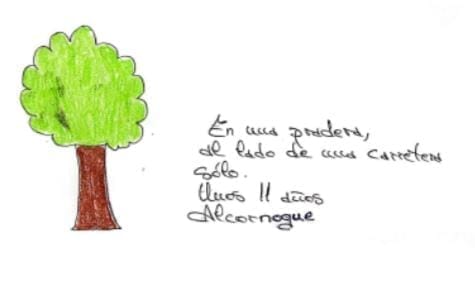 En una pradera,
al lado de una carretera
sólo.
Unos 11 años
Alcornoque